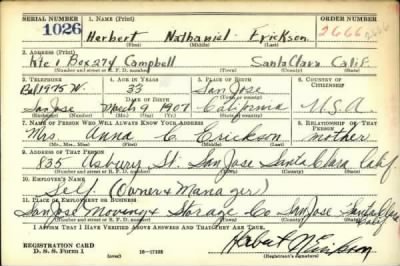 SERIAL NUMBER 1. NAME (Print) ORDER NUMBER
1026 Herbert Nathaniel Erickson 2666
(First) (Middle) (Last)
2. ADDRESS (Print)
Rte 1 Box 274 Campbell Santa Clara Calif.
(Number and street or R. F. D. number) (Town) (County) (State)
3. TELEPHONE 4. AGE IN YEARS 5. PLACE OF BIRTH 6. COUNTRY OF CITIZENSHIP
Bal 1975 W. 33 San Jose
DATE OF BIRTH (Town or county)
San Jose March 9 1907 California U.S.A.
(Exchange) (Number) (Mo.) (Day) (Yr.) (State or country)
7. NAME OF PERSON WHO WILL ALWAYS KNOW YOUR ADDRESS 8. RELATIONSHIP OF THAT PERSON
Mrs. Anna C. Erickson mother
(Mr., Mrs., Miss) (First) (Middle) (Last)
9. ADDRESS OF THAT PERSON
835 Asbury St. San Jose Santa Clara Calif
(Number and street or R. F. D. number) (Town) (County) (State)
10. EMPLOYER'S NAME
Self (Owner & Manager)
11. PLACE OF EMPLOYMENT OR BUSINESS
San Jose Moving & Storage Co San Jose Santa Clara Calif
(Number and street or R. F. D. number) (Town) (County) (State)
I AFFIRM THAT I HAVE VERIFIED ABOVE ANSWERS AND THAT THEY ARE TRUE.
REGISTRATION CARD
D. S. S. Form 1 16—17105 Herbert N Erickson
(Registrant's signature)